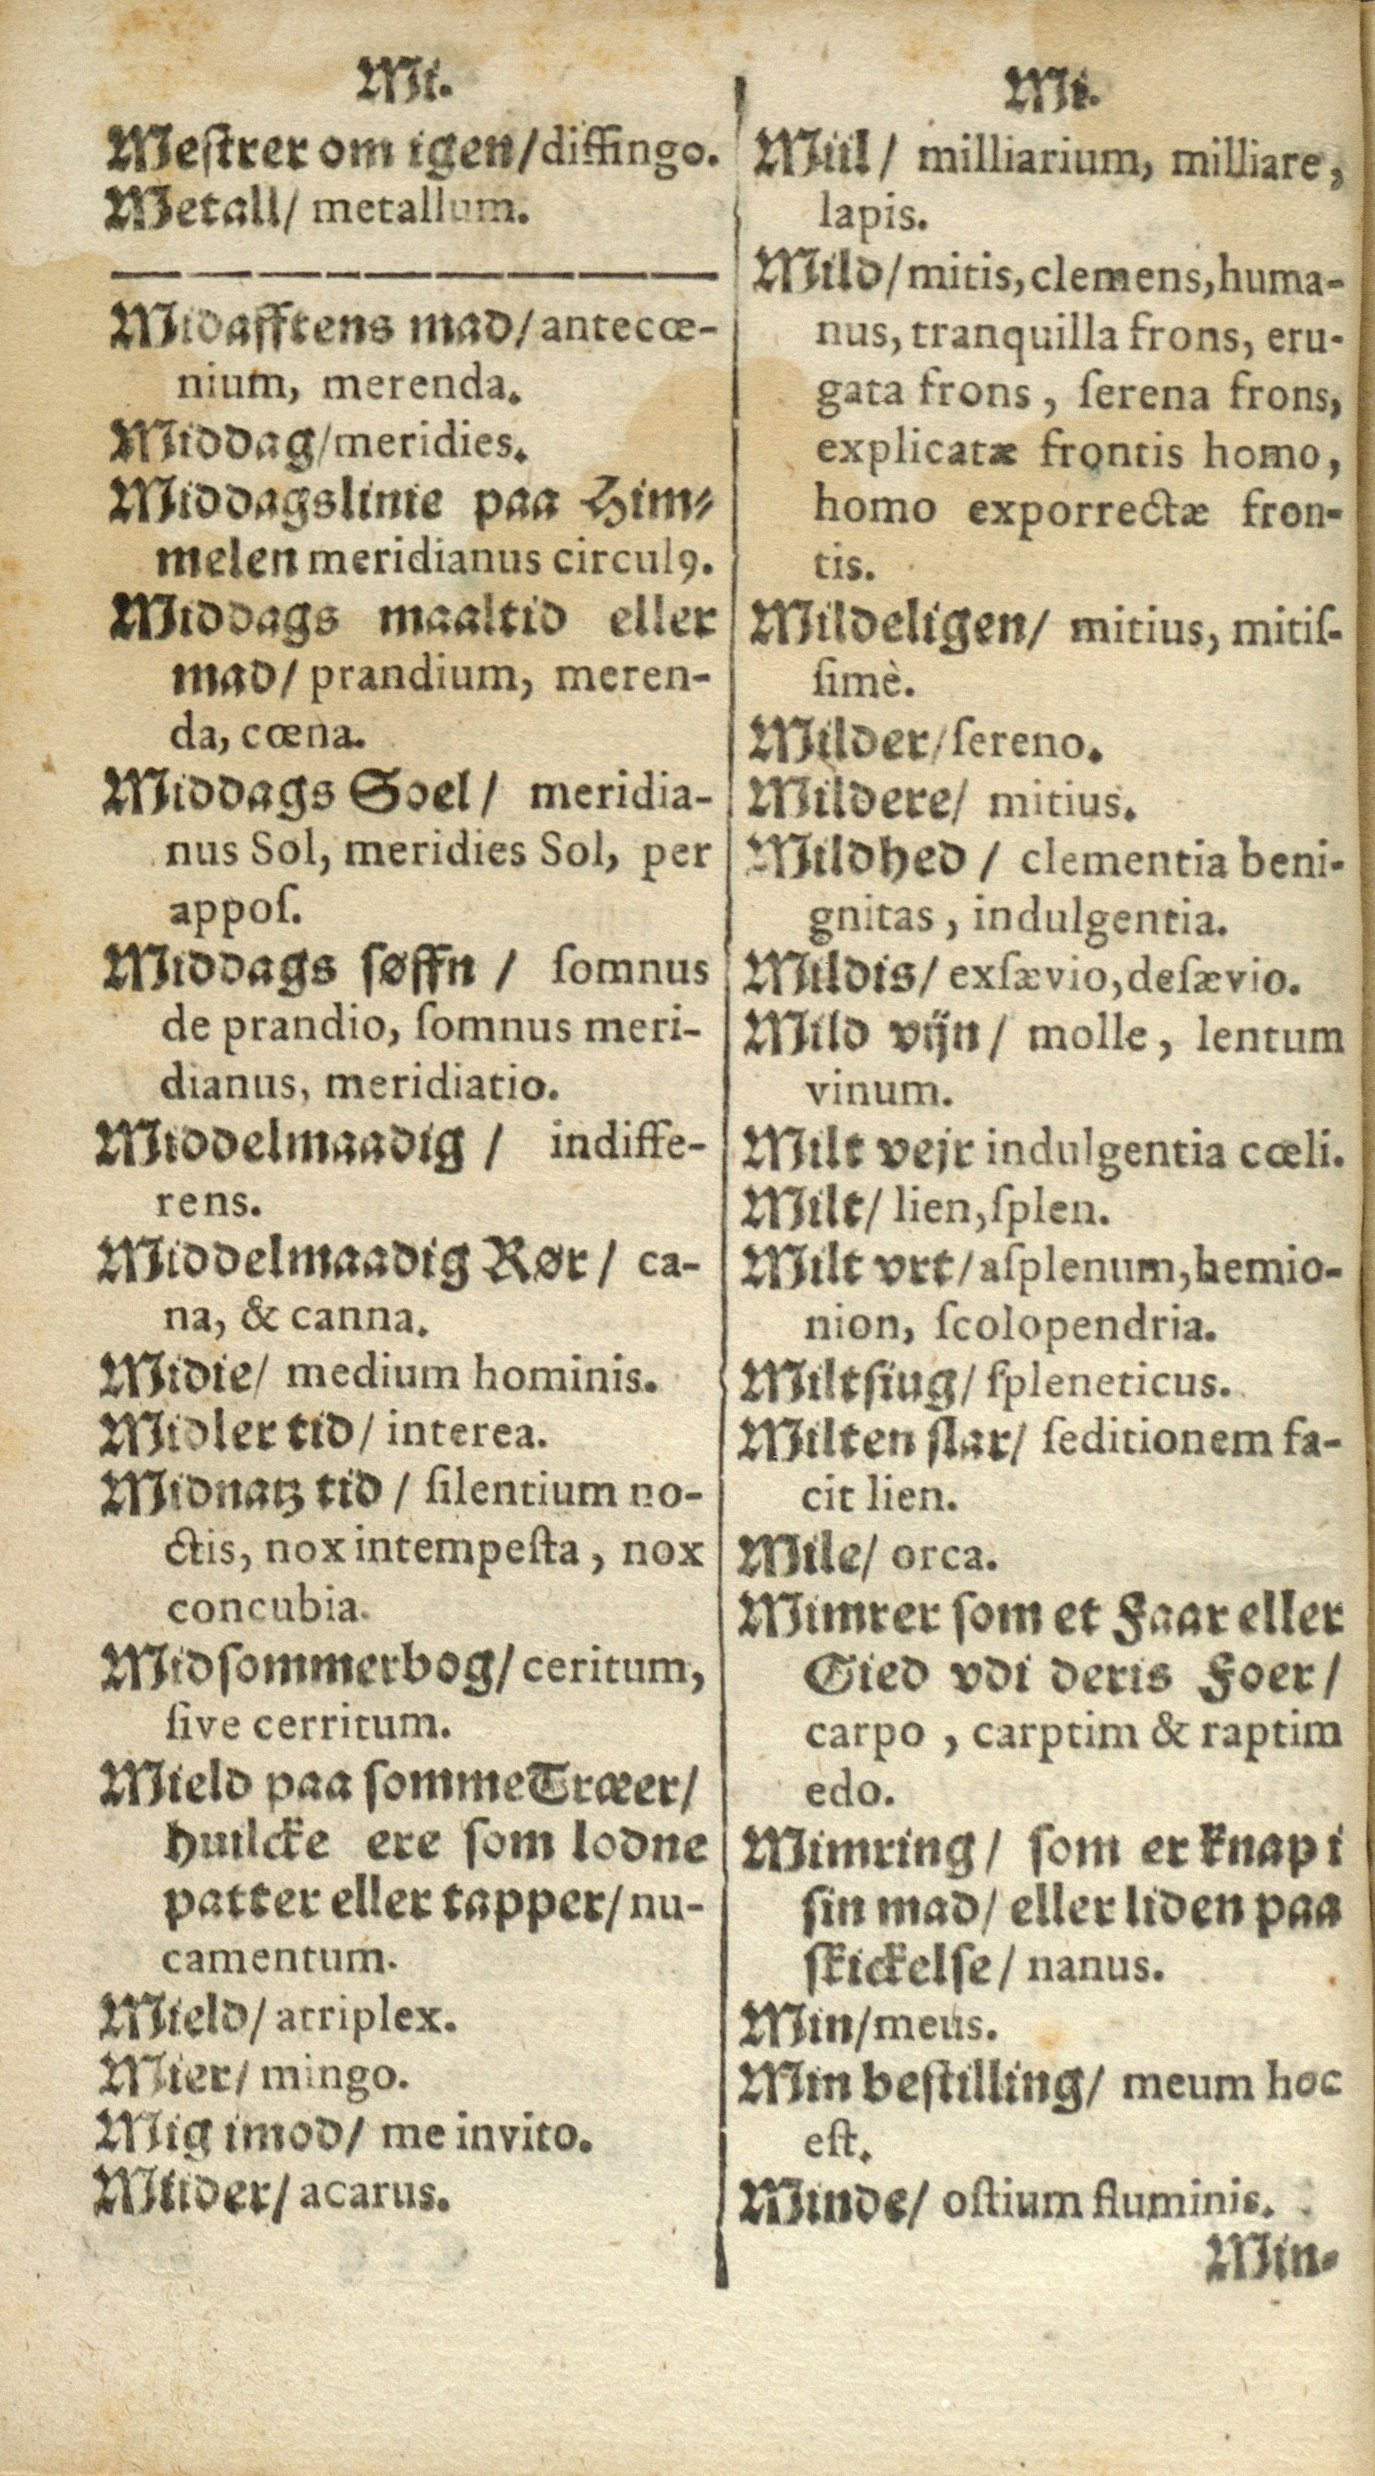 Mi.
Meſtrer om igen/diffingo.
Metall/ metallum.
Midafftens mad/antecœ-
nium, merenda.
Middag/meridies.
Middagslinie paa Him-
melen meridianus circulꝰ.
Middags maaltid eller
mad/ prandium, meren-
da, cœna.
Middags Soel/ meridia-
nus Sol, meridies Sol, per
appoſ.
Middags ſøffn / ſomnus
de prandio, ſomnus meri-
dianus, meridiatio.
Middelmaadig / indiffe-
rens.
Middelmaadig Rør/ ca-
na, & canna.
Midie/ medium hominis.
Midler tid/ interea.
Midnatz tid / ſilentium no-
ctis, nox intempeſta, nox
concubia.
Midſommerbog/ ceritum,
ſive cerritum.
Mield paa ſomme Træer/
huilcke ere ſom lodne
patter eller tapper/ nu-
camentum.
Mield/ atriplex.
Mier/ mingo.
Mig imod/ me invito.
Miider/ acarus.
Mi.
Miil/ milliarium, milliare,
lapis.
Mild/mitis, clemens, huma-
nus, tranquilla frons, eru-
gata frons, ſerena frons,
explicatæ frontis homo,
homo exporrectæ fron-
tis.
Mildeligen/ mitius, mitiſ-
ſimè.
Milder/ſereno.
Mildere/ mitius.
Mildhed / clementia beni-
gnitas, indulgentia.
Mildis/ exſævio, deſævio.
Mild vijn/ molle, lentum
vinum.
Milt vejr indulgentia cœli.
Milt/ lien, ſplen.
Milt vrt/aſplenum, hemio-
nion, ſcolopendria.
Miltſiug/ ſpleneticus.
Milten ſlar/ ſeditionem fa-
cit lien.
Mile/ orca.
Mimrer ſom et Faar eller
Gied vdi deris Foer/
carpo, carptim & raptim
edo.
Mimring/ ſom er knap i
ſin mad/ eller liden paa
ſkickelſe/ nanus.
Min/meus.
Min beſtilling/ meum hoc
eſt.
Minde/ oſtium fluminis.
Min-